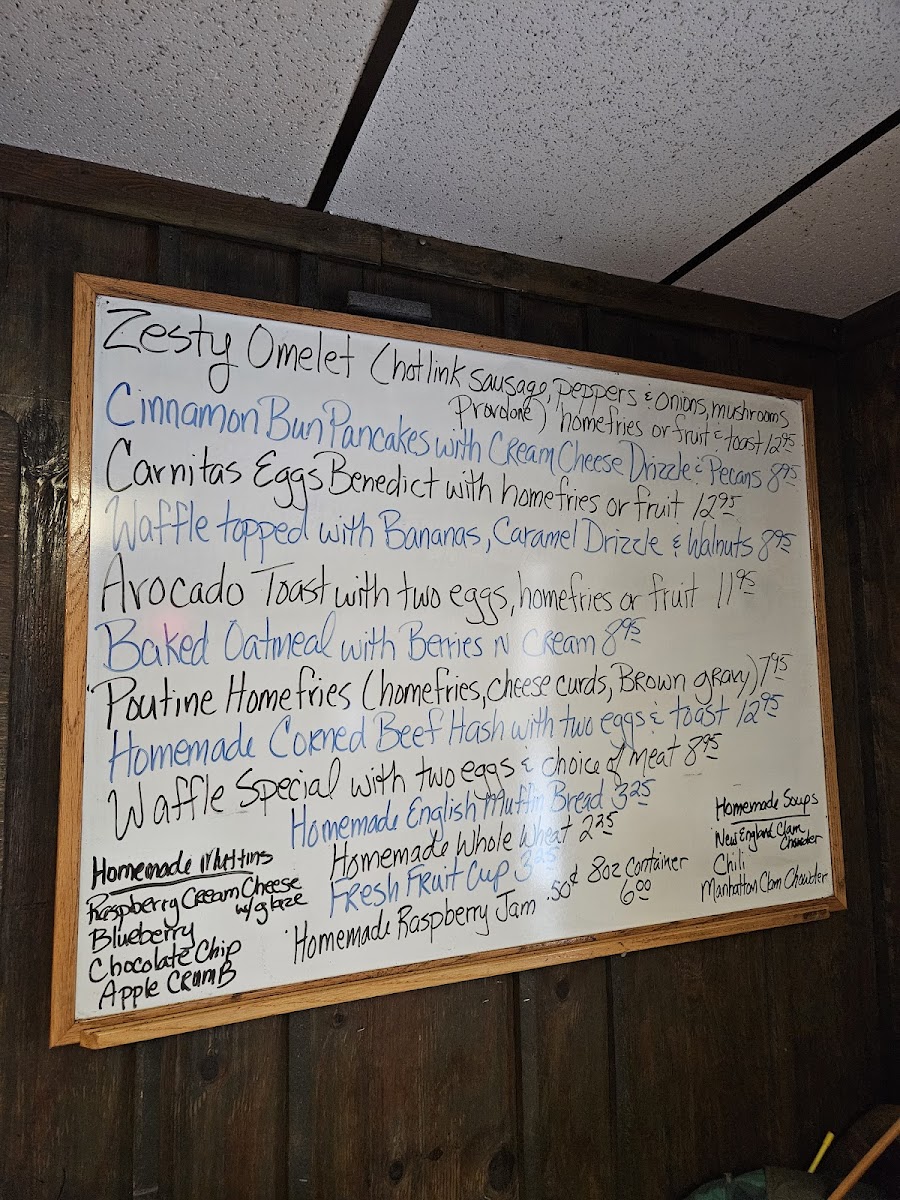 Zesty Omelet (hotlink sausage, peppers & onions, mushrooms
Provolone) homefries or fruit & toast 12.95
Cinnamon Bun Pancakes with Cream Cheese Drizzle & Pecans 8.95
Carnitas Eggs Benedict with homefries or fruit 12.95
Waffle topped with Bananas, Caramel Drizzle & Walnuts 8.95
Avocado Toast with two eggs, homefries or fruit 11.95
Baked Oatmeal with Berries N Cream 8.95
Poutine Homefries (homefries, cheese curds, Brown gravy) 7.95
Homemade Corned Beef Hash with two eggs & toast 12.95
Waffle Special with two eggs & choice of meat 8.95
Homemade English Muffin Bread 3.25
Homemade Whole Wheat 2.25
Fresh Fruit Cup 3.25
Homemade Raspberry Jam .50¢ 8oz container
6.00
Homemade Muffins
Raspberry Cream Cheese
w/glaze
Blueberry
Chocolate Chip
Apple Crumb
Homemade Soups
New England Clam
Chowder
Chili
Manhattan Clam Chowder